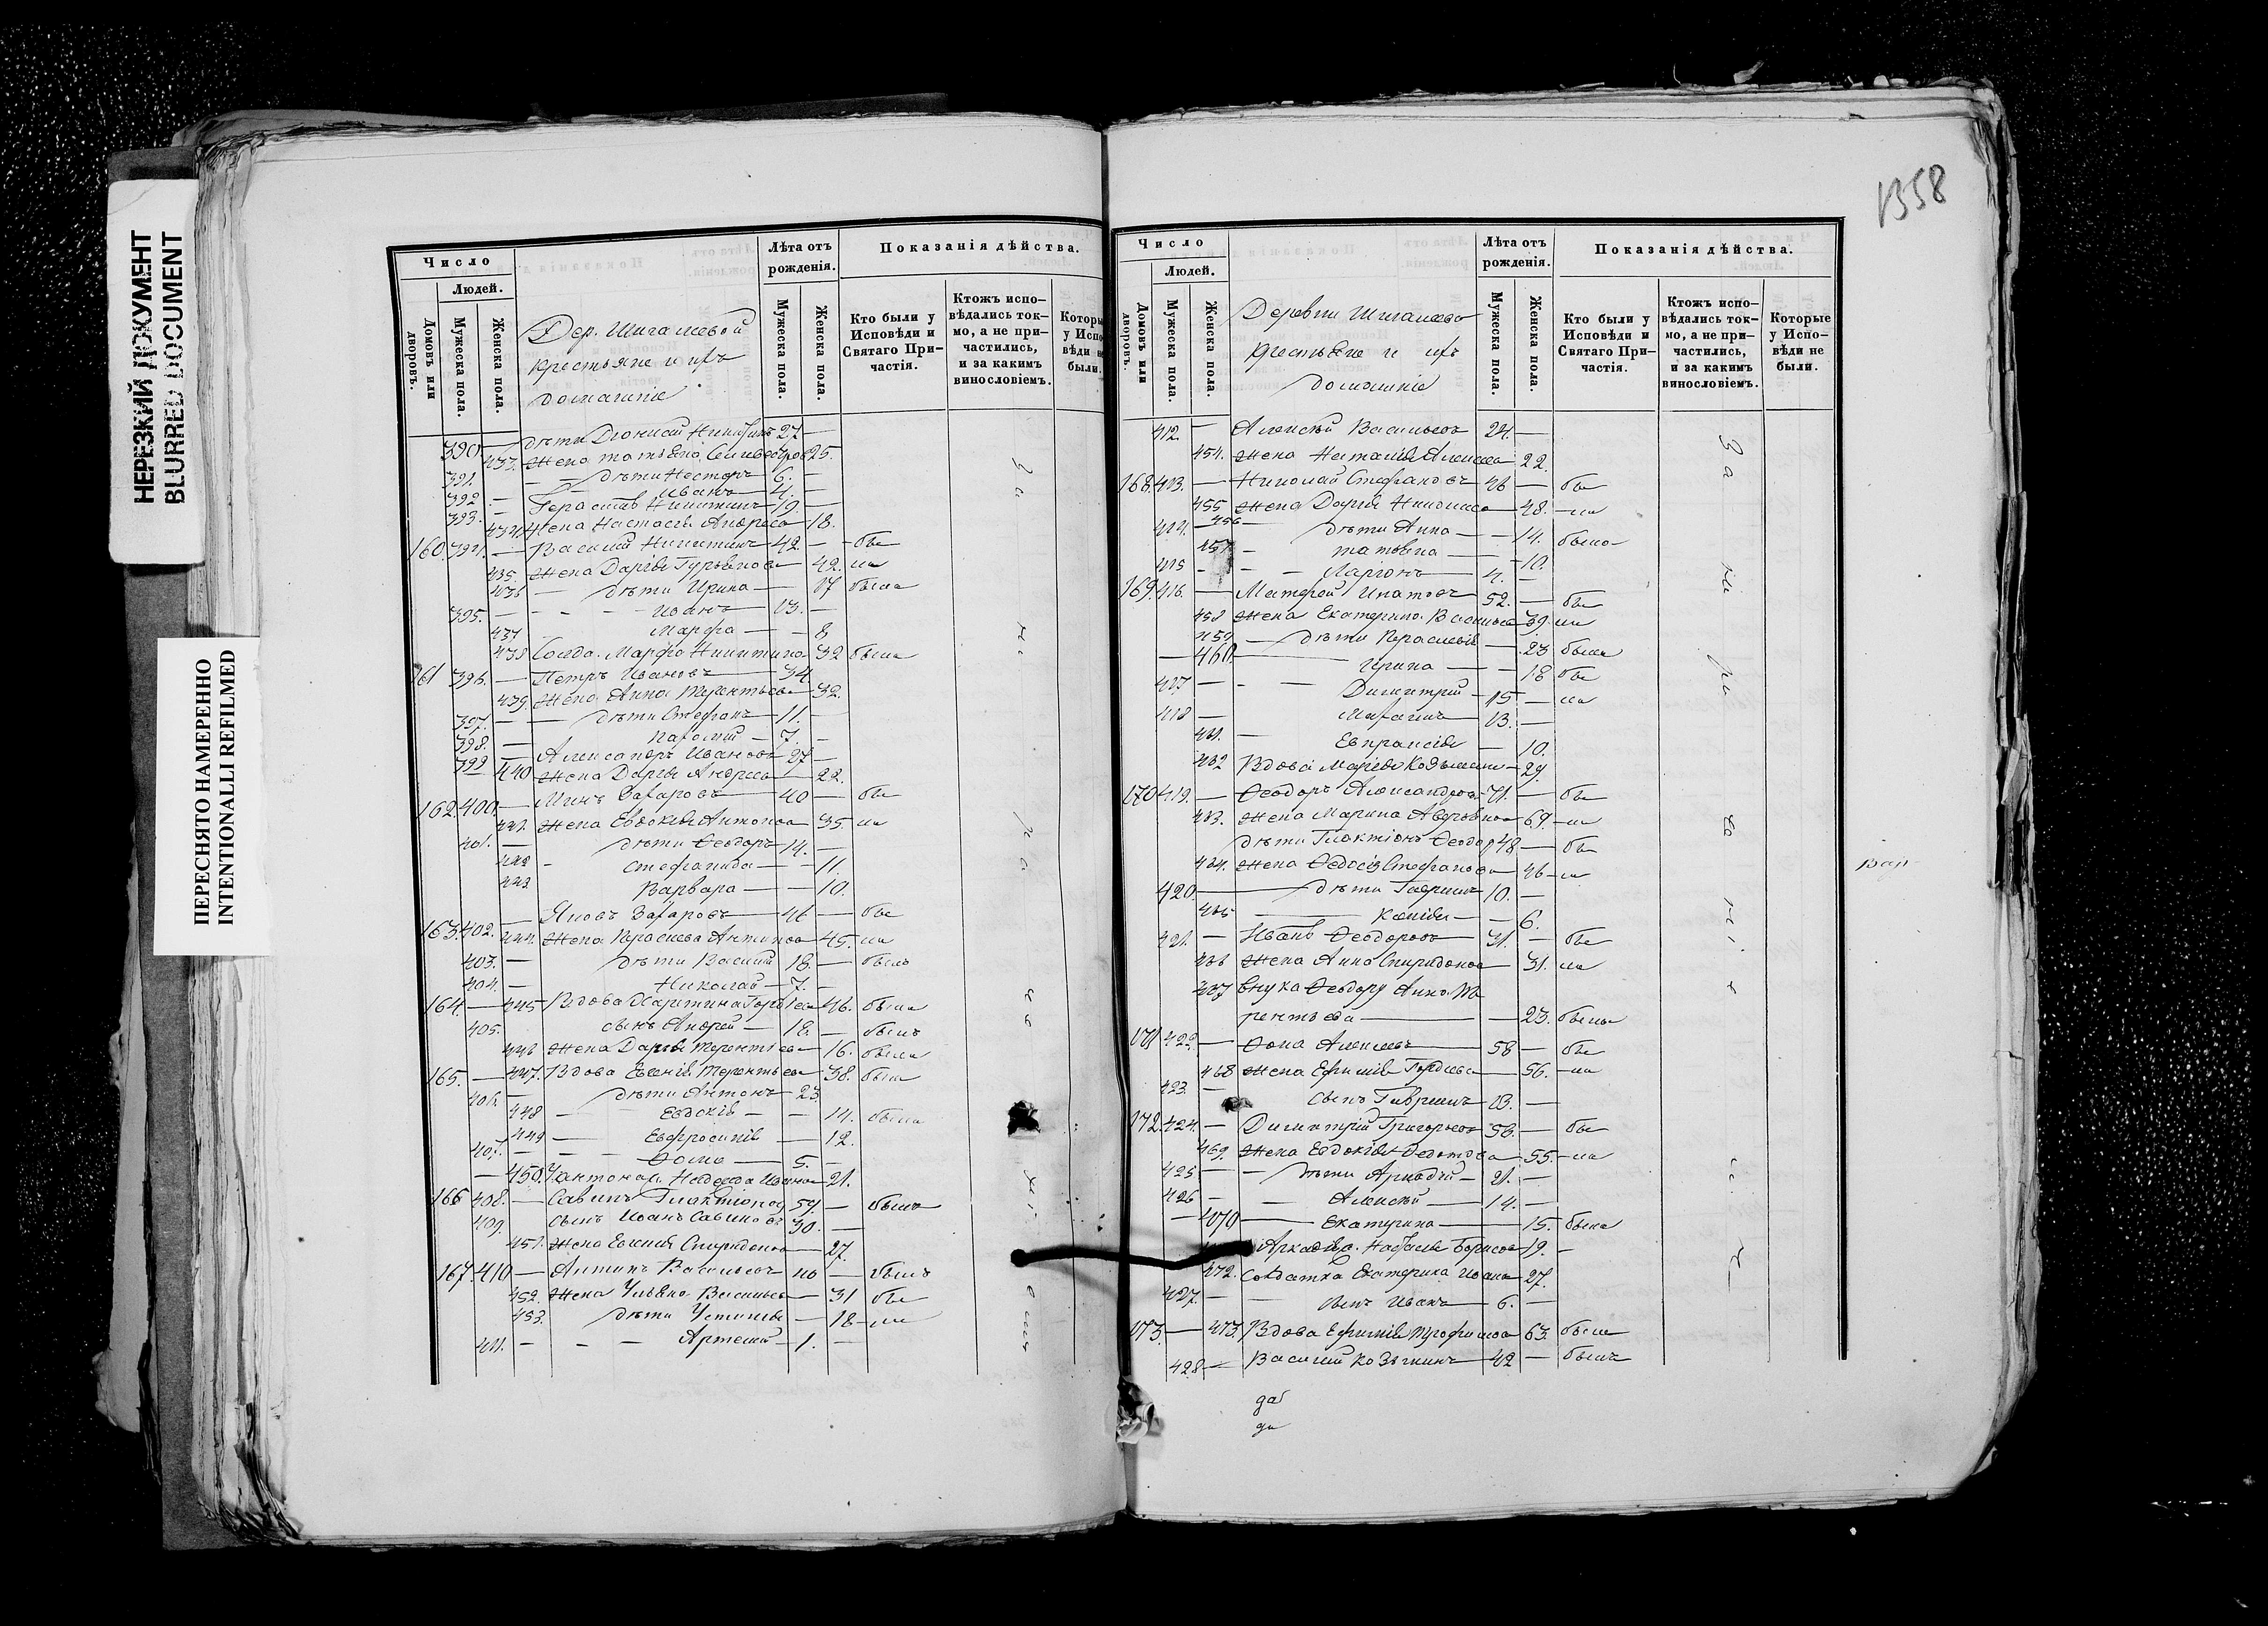 НЕРЕЗКИЙ ДОКУМЕНТ
BLURRED DOCUMENT
ПЕРЕСНЯТО НАМЕРЕННО
INTENTIONALLI REFILMED
Число
Людей.
Домовъ или дворовъ.
Мужеска пола.
Женска пола.
Дер. Шигалевой
крестьяне и ихъ
домашніе
Лѣта отъ рожденія.
Мужеска пола.
Женска пола.
Показанія дѣйства.
Кто были у Исповѣди и Святаго Причастія.
Ктожъ исповѣдались токмо, а не причастились, и за какимъ винословіемъ.
Которы у Испо вѣди н были.
390. — дѣти Діонисій Никитинъ 27 —
433. Жена Татьяна Селивестров 25.
391. — дѣти Несторъ 6. —
392 — Иванъ 4. —
393. Герасимъ Никитинъ 19. —
434. Жена Настасья Андреева 18.
160. 394. — Василій Никитинъ 42. — бы
435. Жена Дарья Гурьянова 42. ли
436 — дѣти Ирина — 17 была
395. — Иванъ 13. —
437 Марфа — 8
438 Солда. Марфа Никитина 32 была
161 396. — Петръ Ивановъ 34.
439. Жена Анна Терентьева 32.
397. — дѣти Стефанъ 11. —
398. — 7. —
399 — Александръ Ивановъ 27 —
440 Жена Дарья Андреева 22.
162. 400. — Минъ Захаровъ 40 — бы
441. Жена Евдокія Антонова 35. ли
401. — дѣти Ѳеодоръ 14. —
442 — Стефанида — 11.
443 Варвара — 10.
163. 402. — Яковъ Захаровъ 46 — бы
444. Жена Парасковья Антипова 45. ли
403. — дѣти Василій 18. — былъ
404. — Николай 7. —
164 — 445 Вдова Мартина 46. была
405. сынъ Андрей 18. — былъ
446 Жена Дарья Терентьева 16. была
165. — 447. Вдова Евгенія Терентьева 38. была
406. — дѣти Антонъ 23
448 — Евдокія — 14. была
449 — Евфросинія — 12.
407. — Ѳома 5. —
— 450. Надежда Ивано 21.
166 408. — Савинъ Галактіонов 59. — былъ
409. сынъ Иванъ Савиновъ 30. —
451. Жена Евгенія Спиридонова 27.
167. 410 — Антипъ Васильевъ 40 — былъ
452. Жена Ульяна Васильев 31 бы
453. дѣти Устинья — 18 ли
411. — Артемій 1. —
1358
Число
Людей.
Домовъ или дворовъ.
Мужеска пола.
Женска пола.
Деревни Шигалево
крестьяне и ихъ
домашніе
Лѣта отъ рожденія.
Мужеска пола.
Женска пола.
Показанія дѣйства.
Кто были у Исповѣди и Святаго Причастія.
Ктожъ исповѣдались токмо, а не причастились, и за какимъ винословіемъ.
Которые у Исповѣди не были.
412. — Алексѣй Васильевъ 24. —
454. Жена Наталія Алексѣева 22.
168. 413. — Николай Стефановъ 46 — бы
455 Жена Дарья Никонова 48. ли
414. 456 — дѣти Анна — 14. была
457 — Татьяна — 10.
415 — Ларіонъ 4. —
169. 416. — Матфей Ипатовъ 52. — бы
458 Жена Екатерина Васильева 39. ли
459 — дѣти Парасковія — 23 была
460. Ирина — 18 бы
417 — Димитрій 15 — ли
418 — 13. —
461. — Евпраксія — 10.
462 Вдова Марія Козьмина 29.
170 419. — Ѳеодоръ Александров 71. — бы
463. Жена Марина Аверьянова 69. ли
дѣти Галактіонъ Ѳеодор 48 — бы
464. Жена Ѳедосія Стефанова 46 ли
420. — дѣти Гавріилъ 10. —
465 Ксенія — 6.
421. — Иванъ Ѳеодоровъ 31. — бы
466 Жена Анна Спиридонова 31. ли
467 внука Ѳеодору Анна Те
рентьева — 23. была
171 422. — Ѳома Алексѣевъ 58 — бы
468 Жена Ефимія Гордѣева 56. ли
423. — сынъ Гавріилъ 13. —
172. 424. — Димитрій Григорьевъ 58. — бы
469. Жена Евдокія Ѳедотова 55. ли
425 — дѣти Аркадій 21. —
426 — Алексѣй 14. —
— 470 Екатерина — 15. была
Аркадія Наталья Борисова 19. —
472. Солдатка Екатерина Ивана 27.
427. — сынъ Иванъ 6. —
173. — 473. Вдова Ефимія Трофимова 63. была
428 — Василій Козьминъ 42 — былъ